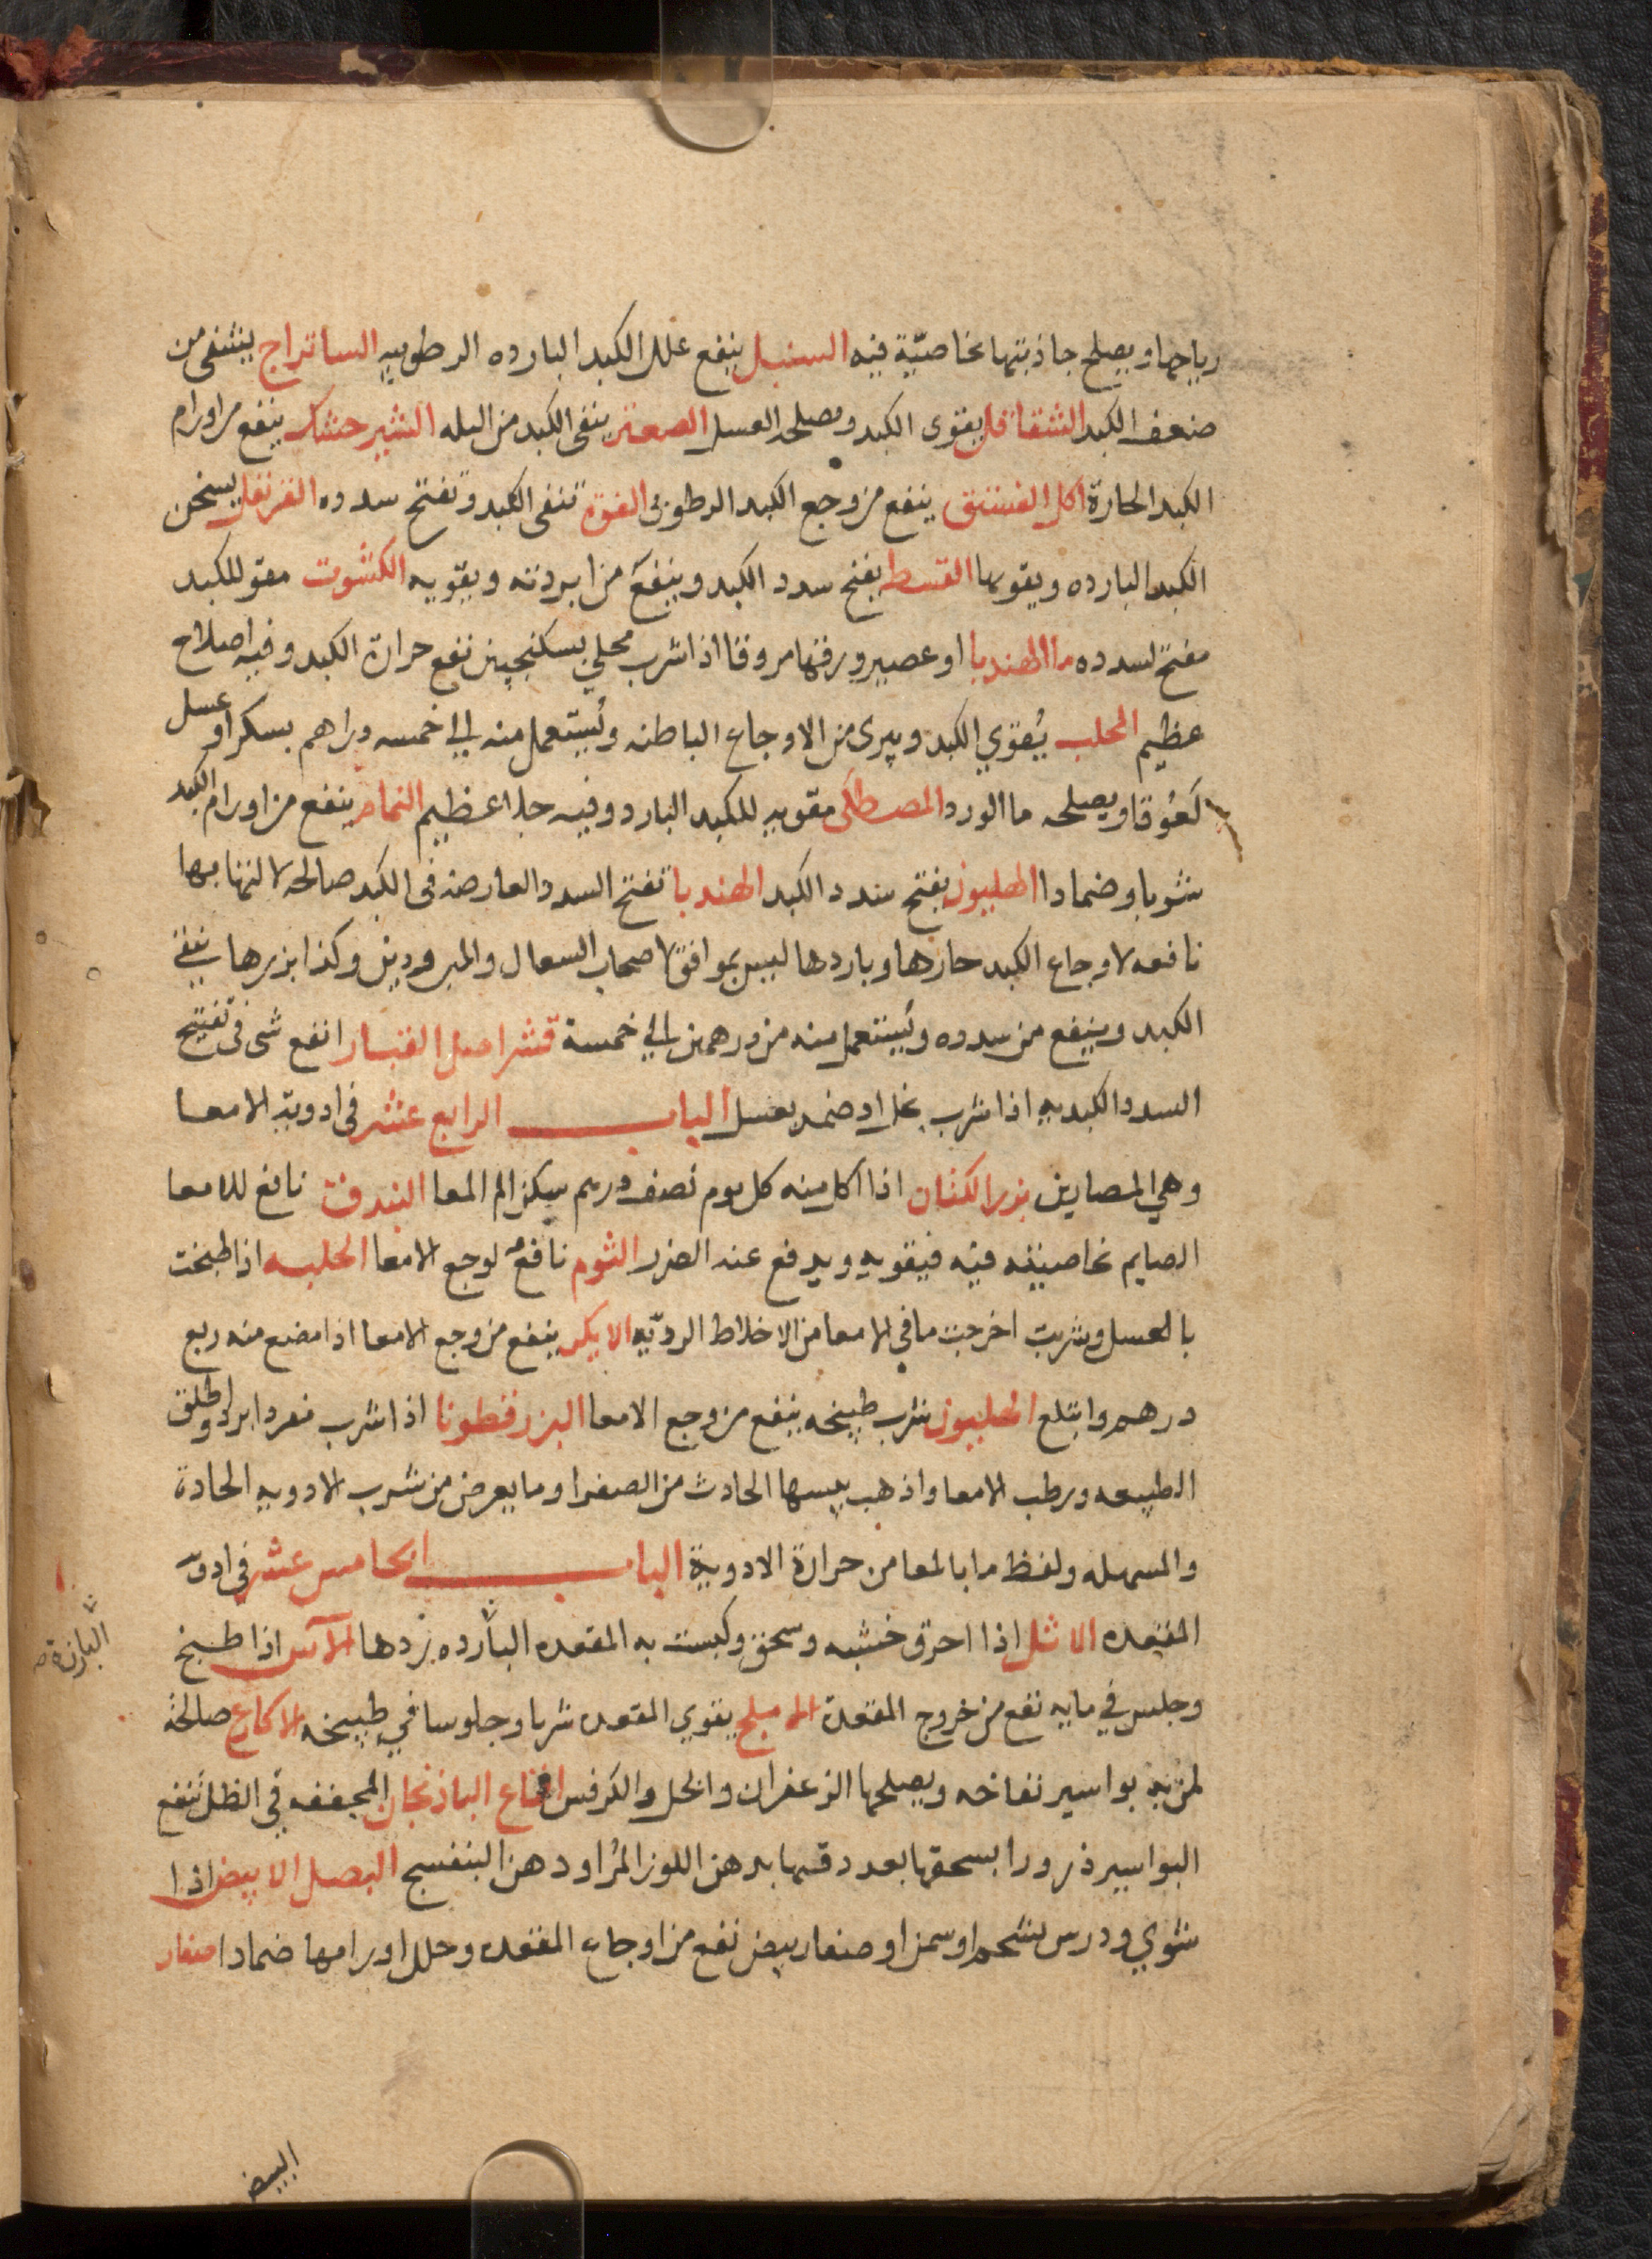 رياحها ويصلح جاذبتها بخاصيّة فيه السنبل ينفع علل الكبد البارده الرطوبيه الساتراج ينشفى من
ضعف الكبد الشقاقل يقوى الكبد ويصلحه العسل الصعتر ينقى الكبد من البله الشيرخشك ينفع من اورام
الكبد الحارة اكل الفستق ينفع من وجع الكبد الرطوبى الفوة تنقى الكبد وتفتح سدده القرنفل يسخن
الكبد البارده ويقويها القسط يفتح سدد الكبد وينفع من ابردته ويقويه الكشوت مقو للكبد
مفتح لسدده ما الهندبا او عصير ورقها مروقا اذا شرب محلي بسكنجبين نفع حرارة الكبد وفيه اصلاح
عظيم المحلب يُقوي الكبد ويبرى من الاوجاع الباطنه ويُستعمل منه الي خمسه دراهم بسكر او عسل
لَعُوقا ويصلحه ما الورد المصطكى مقويه للكبد البارد وفيه جلا عظيم النمام ينفع من اورام الكبد
شربا وضمادا الهليون يفتح سدد الكبد الهندبا تفتح السدد العارضه فى الكبد صالحه لالتهابها
نافعه لاوجاع الكبد حارها وباردها ليس بموافق لاصحاب السعال والمبرودين وكذا بزرها ينقي
الكبد وينفع من سدده ويُستعمل منه من درهمين الي خمسة قشر اصل الكبار انفع شى فى تفتيح
السدد الكبديه اذا شرب بخل او ضمد بعسل الباب الرابع عشر فى ادوية الامعا
وهي المصارين بزر الكتان اذا اكل منه كل يوم نصف درهم سكن الم المعا البندق نافع للامعا
الصايم بخاصيته فيه فيقويه ويدفع عنه الضرر الثوم نافع لوجع الامعا الحلبه اذا طبخت
بالعسل وشربت اخرجت ما في الامعا من الاخلاط الرديّه الايكر ينفع من وجع الامعا اذا مضغ منه ربع
درهم وابتلع الهليون شرب طبيخه ينفع من وجع الامعا البزرقطونا اذا شرب مفردا برد واطلق
الطبيعه ورطب الامعا واذهب يبسها الحادث من الصفرا وما يعرض من شرب الادويه الحادة
والمسهله ولفظ ما بالمعا من حرارة الادوية الباب الخامس عشر في ادوّ
المقعده الاثل اذا احرق خشبه وسحق وكبست به المقعده البارده بردها الآس اذا طبخ
وجلس في مايه نفع من خروج المقعدة الاهليلج يقوي المقعده شربا وجلوسا في طبيخه الاكارع صالحة
لمن به بواسير نفاخه ويصلحها الزعفران والخل والكرفس اقماع الباذنجان المجففه في الظل تنفع
البواسير ذرورا بسحقها بعد دقها بدهن اللوز المُر او دهن البنفسج البصل الابيض اذا
شوي ودرس بشحم او سمن او صفار بيض نفع من اوجاع المقعده وحلل اورامها ضمادا صفار
البارزة صح
البيض